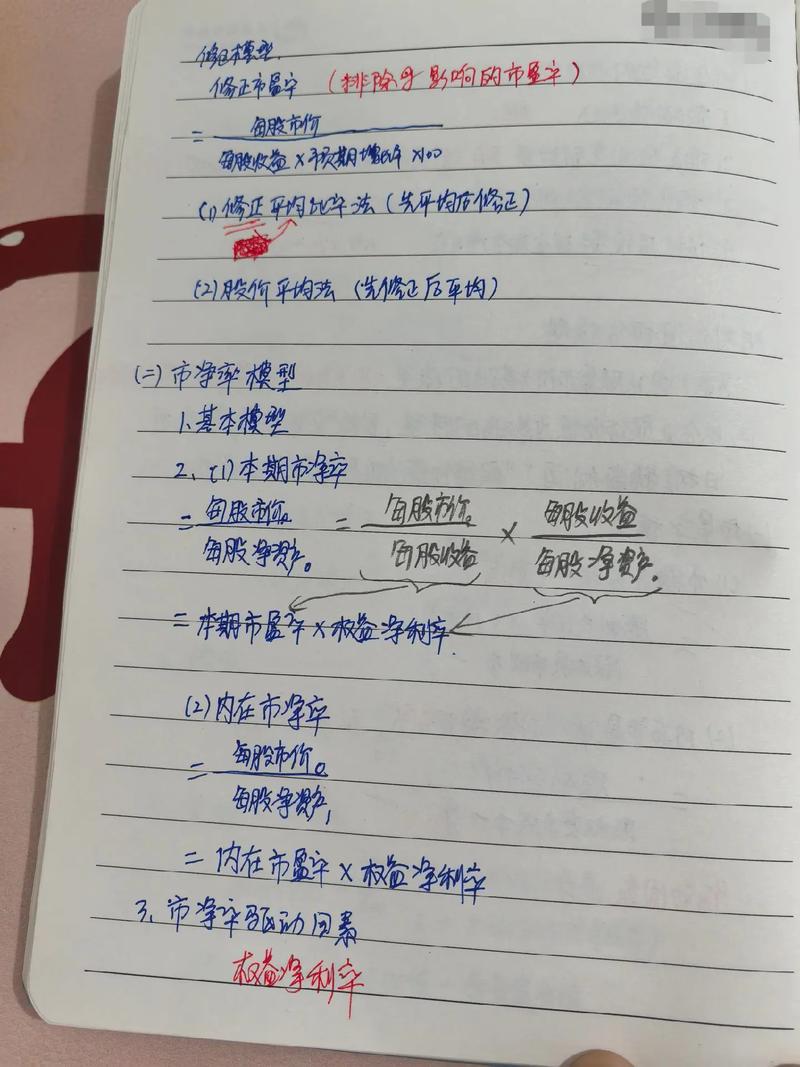 修正模型.
修正市盈率 (排除g影响的市盈率)
= 每股市价 / 每股收益 × 预期增长率 ×100
(1) 修正平均比率法 (先平均后修正)
(2) 股价平均法 (先修正后平均)
(二) 市净率模型
1. 基本模型
2. (1) 本期市净率
= 每股市价₀ / 每股净资产₀ = 每股市价₀ / 每股收益 × 每股收益 / 每股净资产₀
= 本期市盈率 × 权益净利率.
(2) 内在市净率
= 每股市价₀ / 每股净资产₁
= 内在市盈率 × 权益净利率
3. 市净率驱动因素
权益净利率